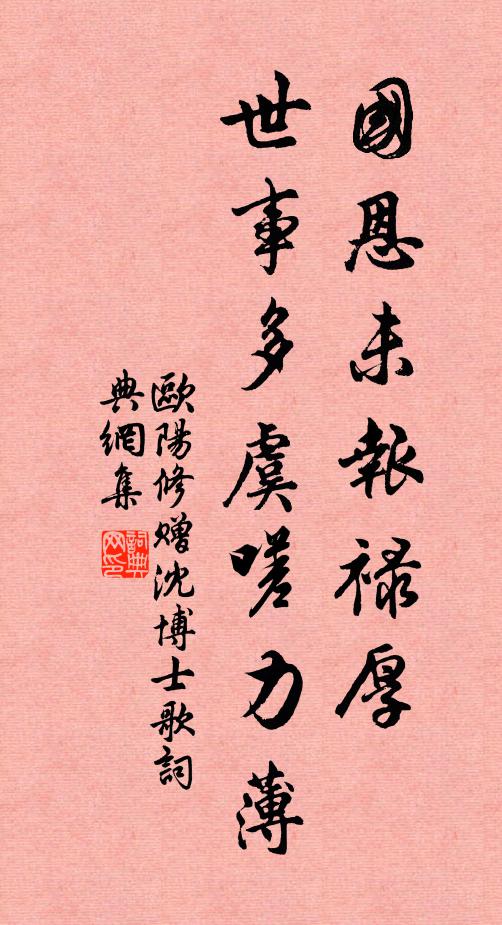 國恩未報祿厚
世事多虞嗟力薄
歐陽修贈沈博士歌詞
典網集
詞典网印